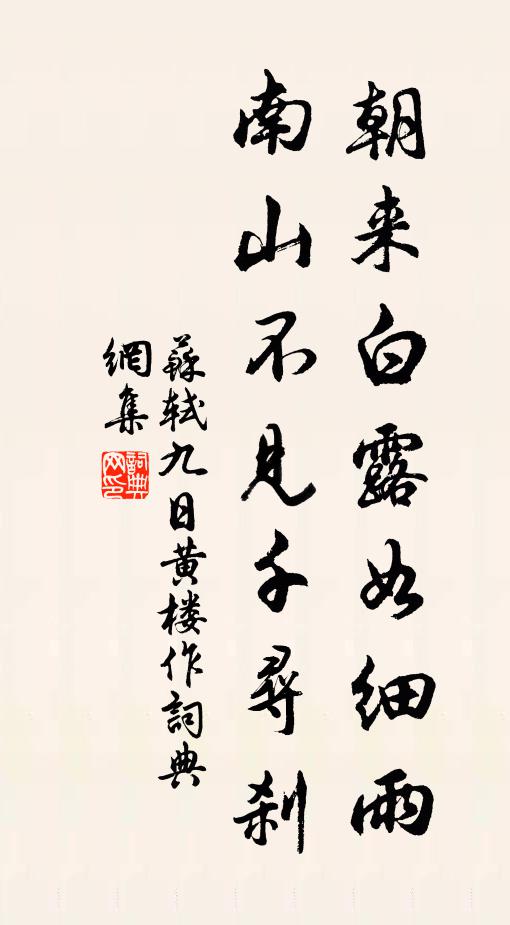 朝来白露如细雨
南山不見千尋刹
蘇軾九日黄楼作詞典
網集
詞典网印